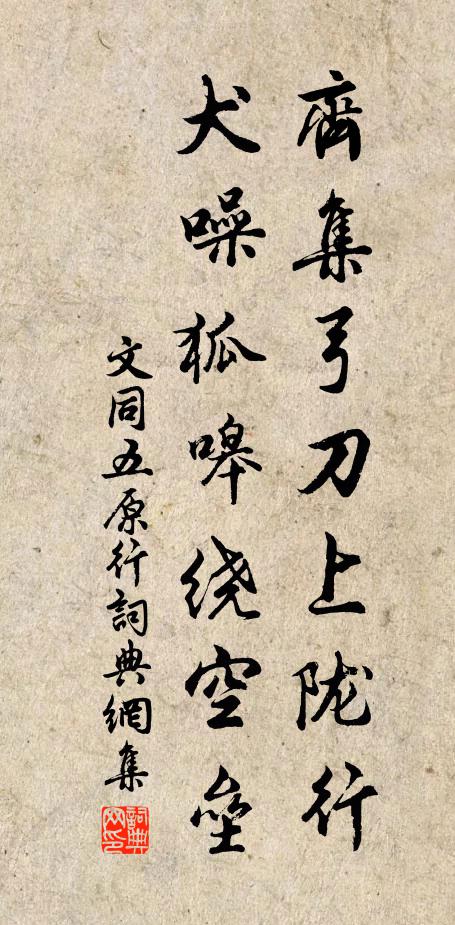 齊集弓刀上陇行
犬噪狐嗥绕空壘
文同五原行詞典網集
詞典网印